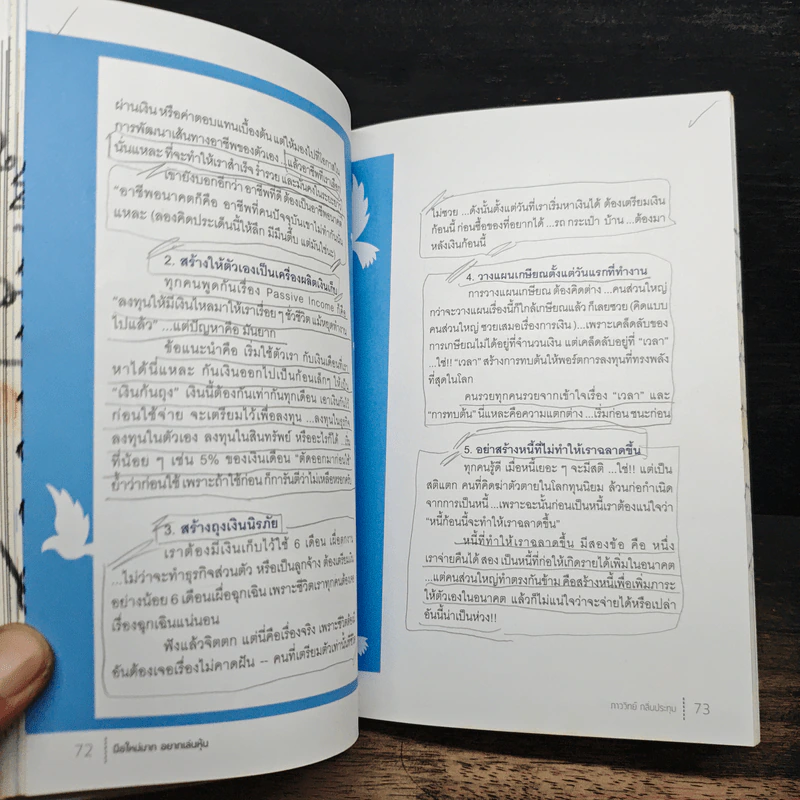 ผ่านเงิน หรือค่าตอบแทนเบื้องต้น แต่ให้มองไปที่โอกาสใน
การพัฒนาเส้นทางอาชีพของตัวเอง แล้วอาชีพที่เราเลือก
นั่นแหละ ที่จะทำให้เราสำเร็จ ร่ำรวย และมั่นคงในระยะยาว
เขายังบอกอีกว่า อาชีพที่ดี ต้องเป็นอาชีพอนาคต
"อาชีพอนาคตก็คือ อาชีพที่คนปัจจุบันเขาไม่ทำกันนั่น
แหละ (ลองคิดประเด็นนี้ให้ลึก มีมึนตึ้บ แต่มันใช่นะ)
2. สร้างให้ตัวเองเป็นเครื่องผลิตเงินเก็บ
ทุกคนพูดกันเรื่อง Passive Income ก็คือ
"ลงทุนให้มีเงินไหลมาให้เราเรื่อยๆ ชั่วชีวิต แม้หยุดทำงาน
ไปแล้ว" ...แต่ปัญหาคือ มันยาก
ข้อแนะนำคือ เริ่มใช้ตัวเรา กับเงินเดือนที่เรา
หาได้นี่แหละ กันเงินออกไปเป็นก้อนเล็กๆ ให้เป็น
"เงินก้นถุง" เงินนี้ต้องกันเท่ากันทุกเดือน เอาเงินกันไว้
ก่อนใช้จ่าย จะเตรียมไว้เพื่อลงทุน ...ลงทุนในธุรกิจ
ลงทุนในตัวเอง ลงทุนในสินทรัพย์ หรืออะไรก็ได้ ...เงิน
ที่น้อย ๆ เช่น 5% ของเงินเดือน "ตัดออกมาก่อนใช้
ย้ำว่าก่อนใช้ เพราะถ้าใช้ก่อน ก็การันตีว่าไม่เหลือหรอกครับ
3. สร้างถุงเงินนิรภัย
เราต้องมีเงินเก็บไว้ใช้ 6 เดือน เผื่อตกงาน
...ไม่ว่าจะทำธุรกิจส่วนตัว หรือเป็นลูกจ้าง ต้องเตรียมเงิน
อย่างน้อย 6 เดือนเผื่อฉุกเฉิน เพราะชีวิตเราทุกคนต้องเจอ
เรื่องฉุกเฉินแน่นอน
ฟังแล้วจิตตก แต่นี่คือเรื่องจริง เพราะชีวิตต้อง
อันต้องเจอเรื่องไม่คาดฝัน – คนที่เตรียมตัวเท่านั้นที่ชีวิต
72 นิสัยใหม่มาก อยากเล่นหุ้น
ไม่ซวย ...ดังนั้นตั้งแต่วันที่เราเริ่มหาเงินได้ ต้องเตรียมเงิน
ก้อนนี้ ก่อนซื้อของที่อยากได้ ...รถ กระเป๋า บ้าน ...ต้องมา
หลังเงินก้อนนี้
4. วางแผนเกษียณตั้งแต่วันแรกที่ทำงาน
การวางแผนเกษียณ ต้องคิดต่าง ...คนส่วนใหญ่
กว่าจะวางแผนเรื่องนี้ก็ใกล้เกษียณแล้ว ก็เลยซวย (คิดแบบ
คนส่วนใหญ่ ซวยเสมอเรื่องการเงิน)...เพราะเคล็ดลับของ
การเกษียณไม่ได้อยู่ที่จำนวนเงิน แต่เคล็ดลับอยู่ที่ "เวลา"
...ใช่!! "เวลา" สร้างการทบต้นให้พอร์ตการลงทุนที่ทรงพลัง
ที่สุดในโลก
คนรวยทุกคนรวยจากเข้าใจเรื่อง "เวลา" และ
"การทบต้น" นี่แหละคือความแตกต่าง ...เริ่มก่อน ชนะก่อน
5. อย่าสร้างหนี้ที่ไม่ทำให้เราฉลาดขึ้น
ทุกคนรู้ดี เมื่อหนี้เยอะ ๆ จะมีสติ ...ใช่!! แต่เป็น
สติแตก คนที่คิดฆ่าตัวตายในโลกทุนนิยม ล้วนก่อกำเนิด
จากการเป็นหนี้ ...เพราะฉะนั้นก่อนเป็นหนี้เราต้องแน่ใจว่า
"หนี้ก้อนนี้จะทำให้เราฉลาดขึ้น"
หนี้ที่ทำให้เราฉลาดขึ้น มีสองข้อ คือ หนึ่ง
เราจ่ายคืนได้ สอง เป็นหนี้ที่ก่อให้เกิดรายได้เพิ่มในอนาคต
...แต่คนส่วนใหญ่ทำตรงกันข้าม คือสร้างหนี้เพื่อเพิ่มภาระ
ให้ตัวเองในอนาคต แล้วก็ไม่แน่ใจว่าจะจ่ายได้หรือเปล่า
อันนี้น่าเป็นห่วง!!
ภาววิทย์ กลิ่นประทุม 73